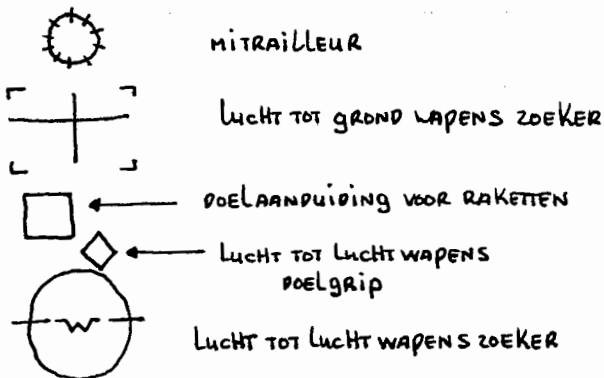 MITRAILLEUR
LUCHT TOT GROND WAPENS ZOEKER
DOELAANDUIDING VOOR RAKETTEN
LUCHT TOT LUCHT WAPENS
DOELGRIP
LUCHT TOT LUCHT WAPENS ZOEKER